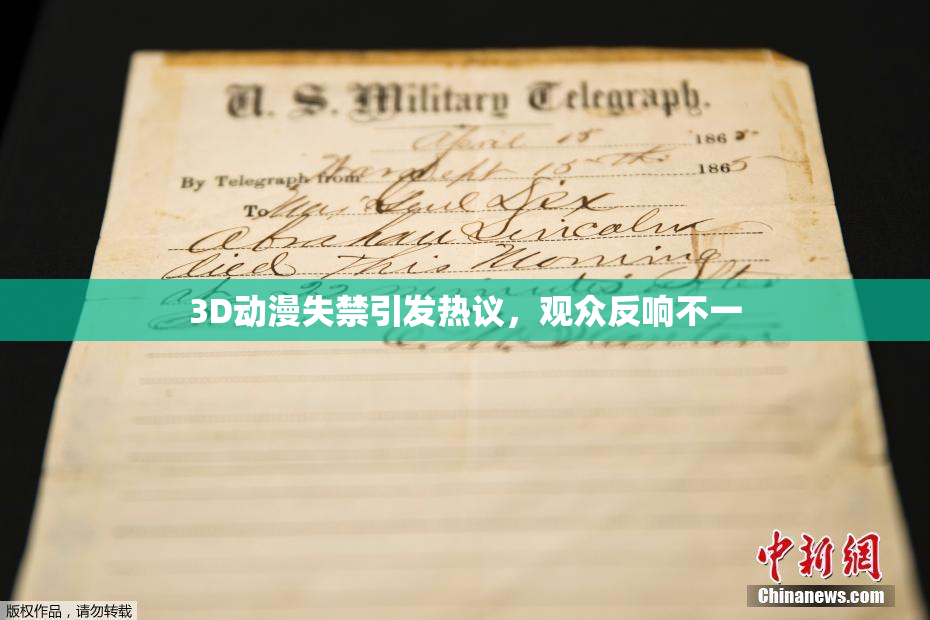 U. S. Military Telegraph.
April 15 1865
By Telegraph from War Dept 15th 1865
To Maj Genl Dix
Abraham Lincoln
died This Morning
at 22 minutes after
3D动漫失禁引发热议，观众反响不一
E. M. Stanton
中新网
Chinanews.com
版权作品，请勿转载